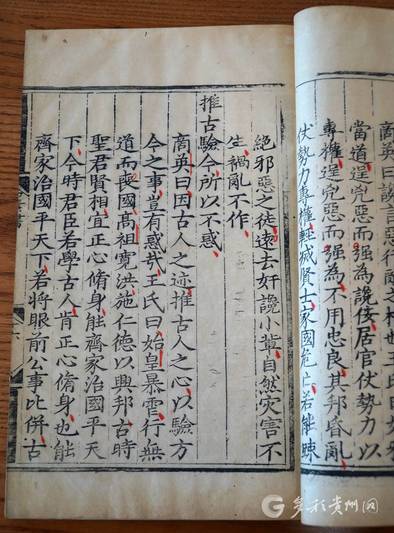 商英曰讒言惡行
當道逞兇惡而強為讒佞居官伏勢力以
專權逞兇惡而強為不用忠良其邦昏亂
伏勢力專權輕滅賢士家國危亡若能踈
絶邪惡之徒遠去奸讒小輩自然灾害不
生禍亂不作
推古驗今所以不惑
商英曰因古人之迹推古人之心以驗方
今之事豈有惑哉王氏曰始皇暴虐行無
道而喪國高祖寛洪施仁德以興邦古時
聖君賢相宜正心脩身能齊家治國平天
下今時君臣若學古人肯正心脩身也能
齊家治國平天下若將眼前公事比併古
多彩贵州网